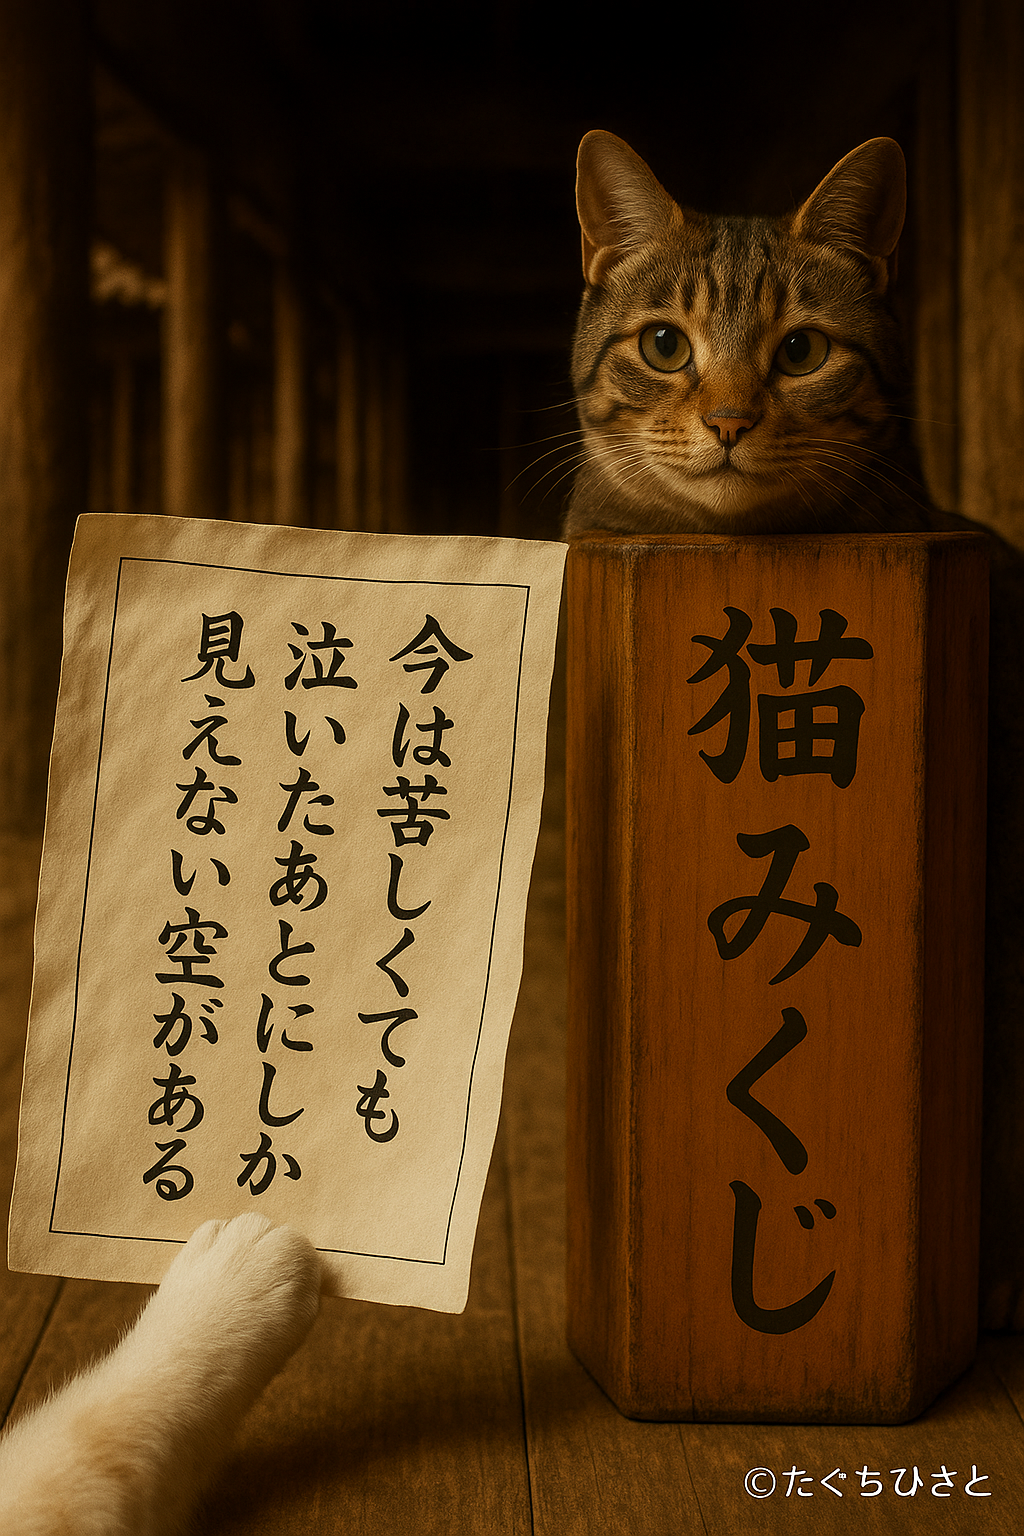 今は苦しくても
泣いたあとにしか
見えない空がある
猫みくじ
©たぐちひさと